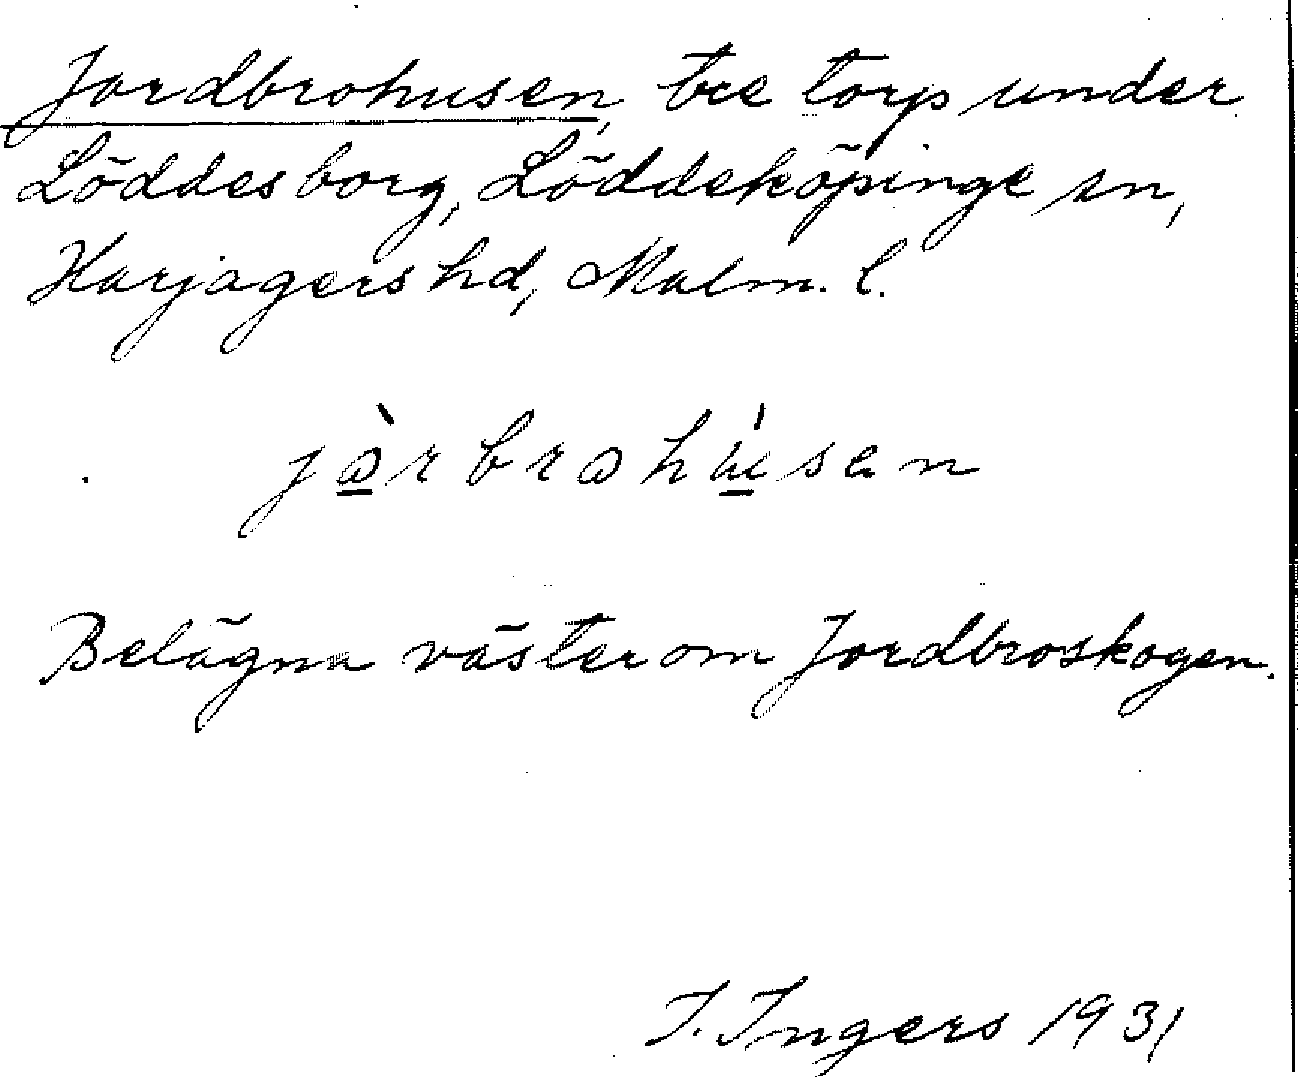 Jordbrohusen, tre torp under
Löddesborg, Löddeköpinge sn,
Harjagers hd, Malm. l.
jàrbrohúsen
Belägna väster om Jordbroskogen.
I. Ingers 1931